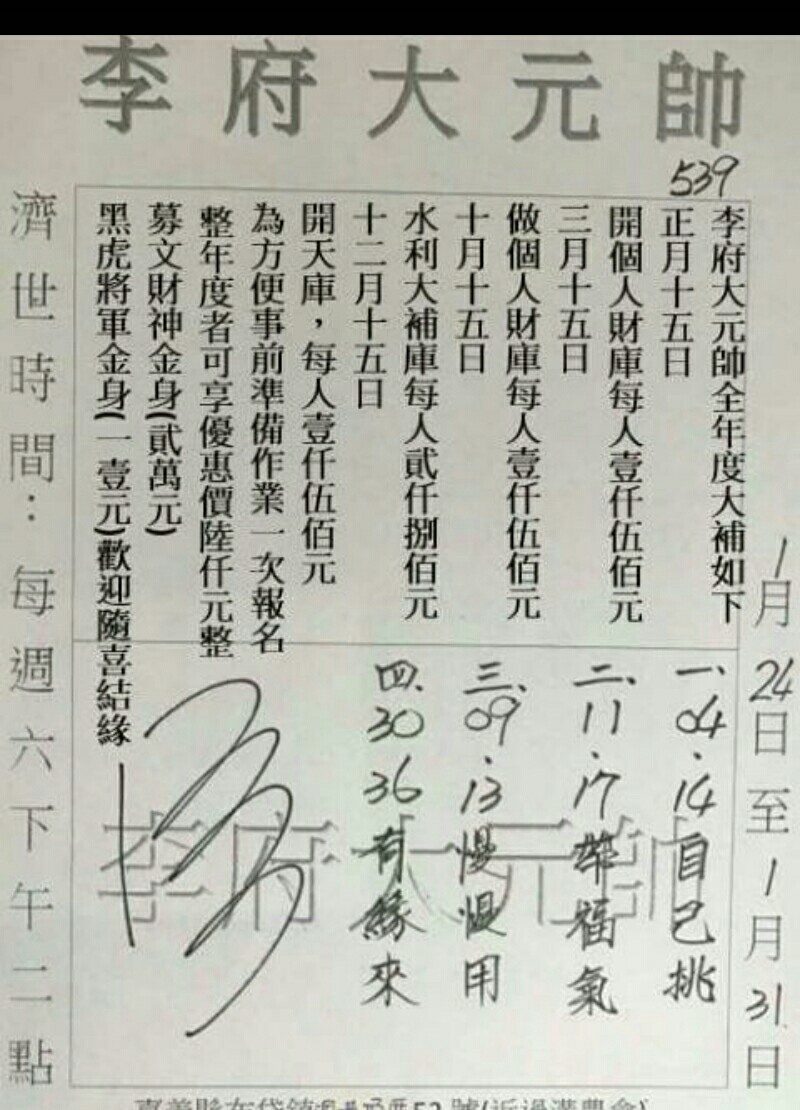 李府大元帥
539
李府大元帥全年度大補如下
正月十五日
開個人財庫每人壹仟伍佰元
三月十五日
做個人財庫每人壹仟伍佰元
十月十五日
水利大補庫每人貳仟捌佰元
十二月十五日
開天庫，每人壹仟伍佰元
為方便事前準備作業一次報名
整年度者可享優惠價陸仟元整
募文財神金身(貳萬元)
黑虎將軍金身(一壹元)歡迎隨喜結緣
1月24日至1月31日
一、04.14自己挑
二、11.17帶福氣
三、09.13慢慢用
四、30 36有緣來
李府大元帥
濟世時間：每週六下午二點